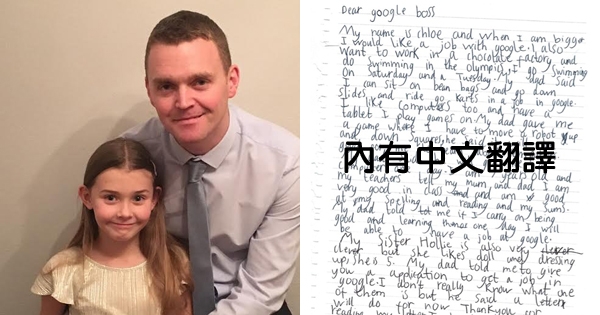 Dear google boss
My name is chloe and when I am bigger
I would like a job with google. I also
want to work in a chocolate factory and
do swimming in the olympics. I go swimming
on Saturday and a Tuesday. My dad said
I can sit on bean bags and go down
slides and ride go karts in a job in google.
I like computers too and have a
tablet I play games on. My dad gave me
a game where I have to move a robot up
and down squares,
內有中文翻譯
my teachers tell my mum and dad I am
very good in class and am good
at my spelling and reading and my sums.
My dad told me if I carry on being
good and learning things one day I will
be able to have a job at google.
My sister Hollie is also very
clever but she likes doll and dressing
up, she is 5. My dad told me to give
you a application to get a job in
google. I don't really know what one
of them is but he said a letter
will do for now. Thank you for
reading my letter